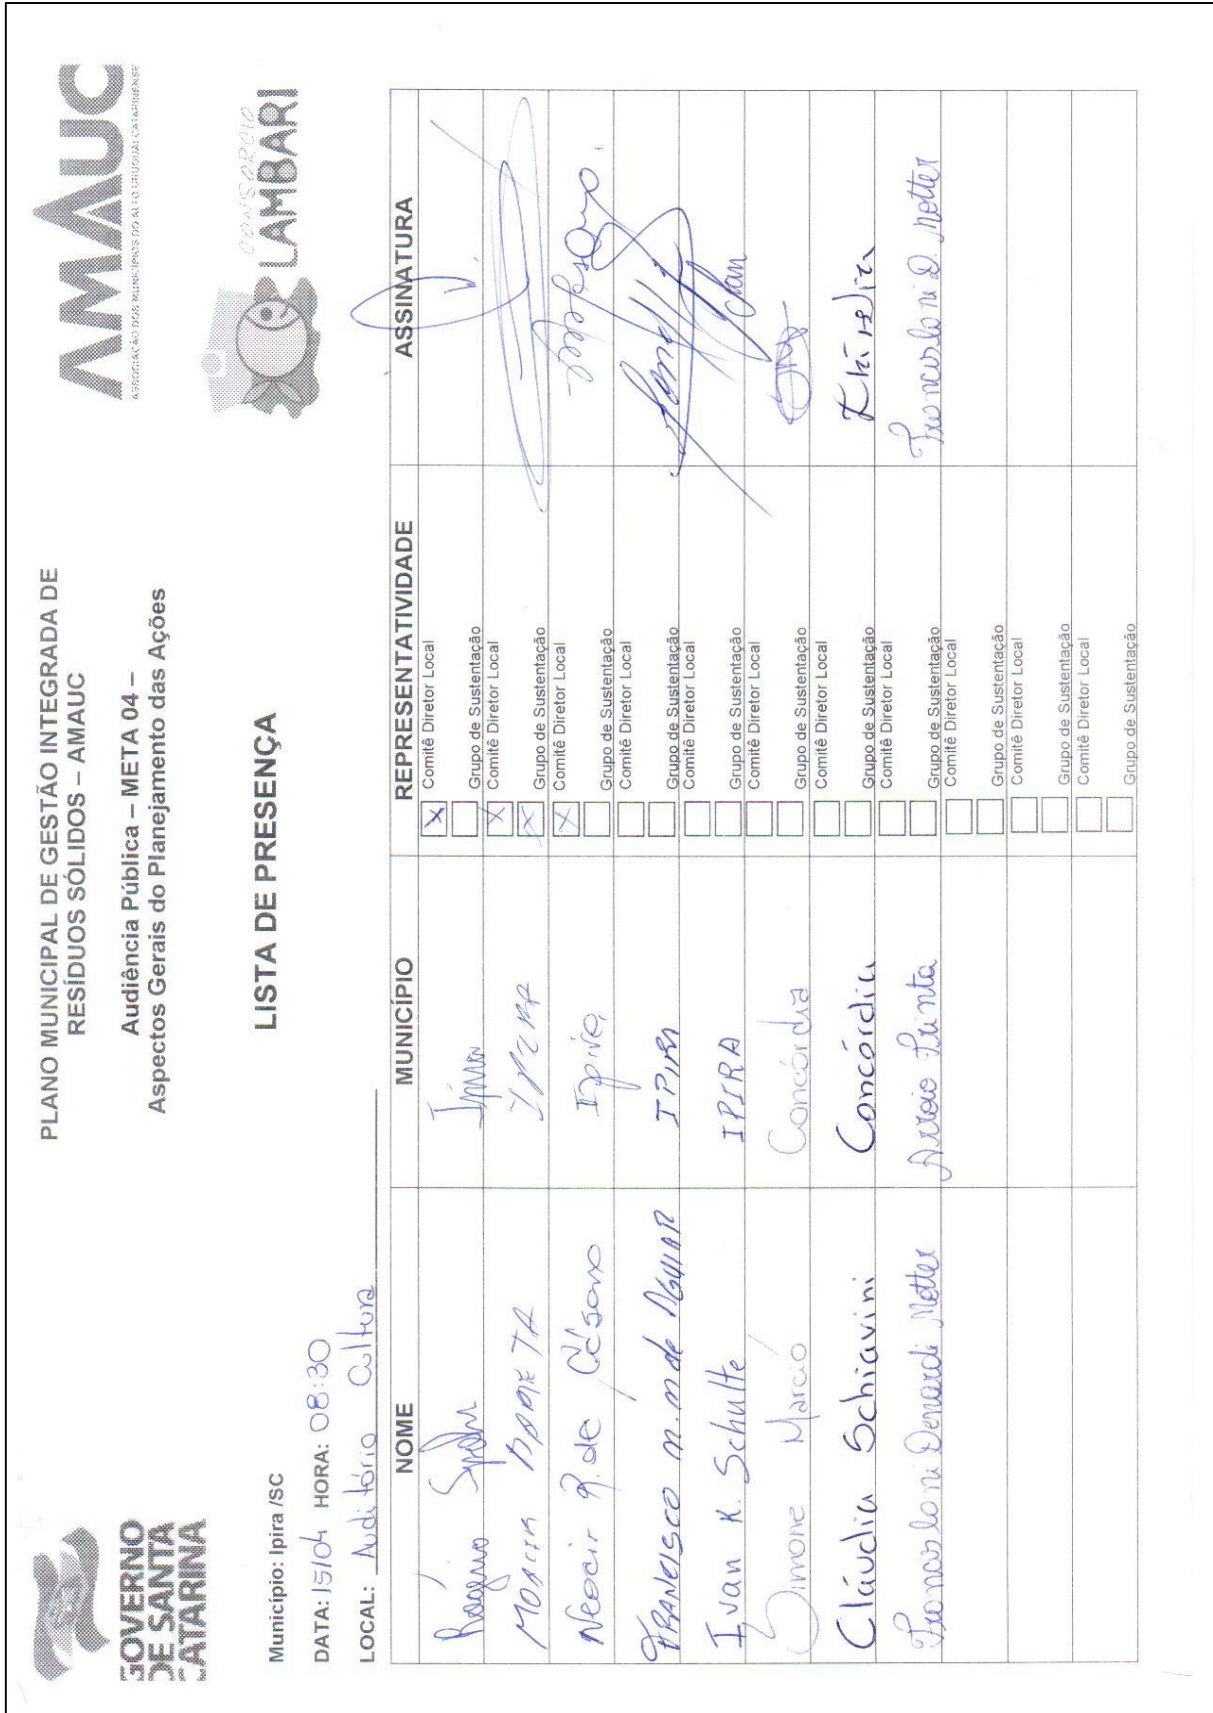 GOVERNO
DE SANTA
CATARINA
PLANO MUNICIPAL DE GESTÃO INTEGRADA DE
RESÍDUOS SÓLIDOS – AMAUC
Audiência Pública – META 04 –
Aspectos Gerais do Planejamento das Ações
AMAUC
ASSOCIAÇÃO DOS MUNICÍPIOS DO ALTO URUGUAI CATARINENSE
CONSORCIO
LAMBARI
LISTA DE PRESENÇA
Município: Ipira /SC
DATA: 15/04 HORA: 08:30
LOCAL: Auditório Cultura
NOME MUNICÍPIO REPRESENTATIVIDADE ASSINATURA
Rogério Ipira X Comitê Diretor Local
Grupo de Sustentação
Moacir IPIRA X Comitê Diretor Local
X Grupo de Sustentação
Neocir R. de Césaro Ipira X Comitê Diretor Local
Grupo de Sustentação
FRANCISCO M. M de AGUIAR IPIRA Comitê Diretor Local
Grupo de Sustentação
Ivan K. Schulte IPIRA Comitê Diretor Local
Grupo de Sustentação
Simone Marció Concórdia Comitê Diretor Local
Grupo de Sustentação
Cláudia Schiavini Concórdia Comitê Diretor Local
Grupo de Sustentação
Francisloni Denardi Motter Arroio Trinta Comitê Diretor Local Francisloni D. Motter
Grupo de Sustentação
Comitê Diretor Local
Grupo de Sustentação
Comitê Diretor Local
Grupo de Sustentação
Comitê Diretor Local
Grupo de Sustentação